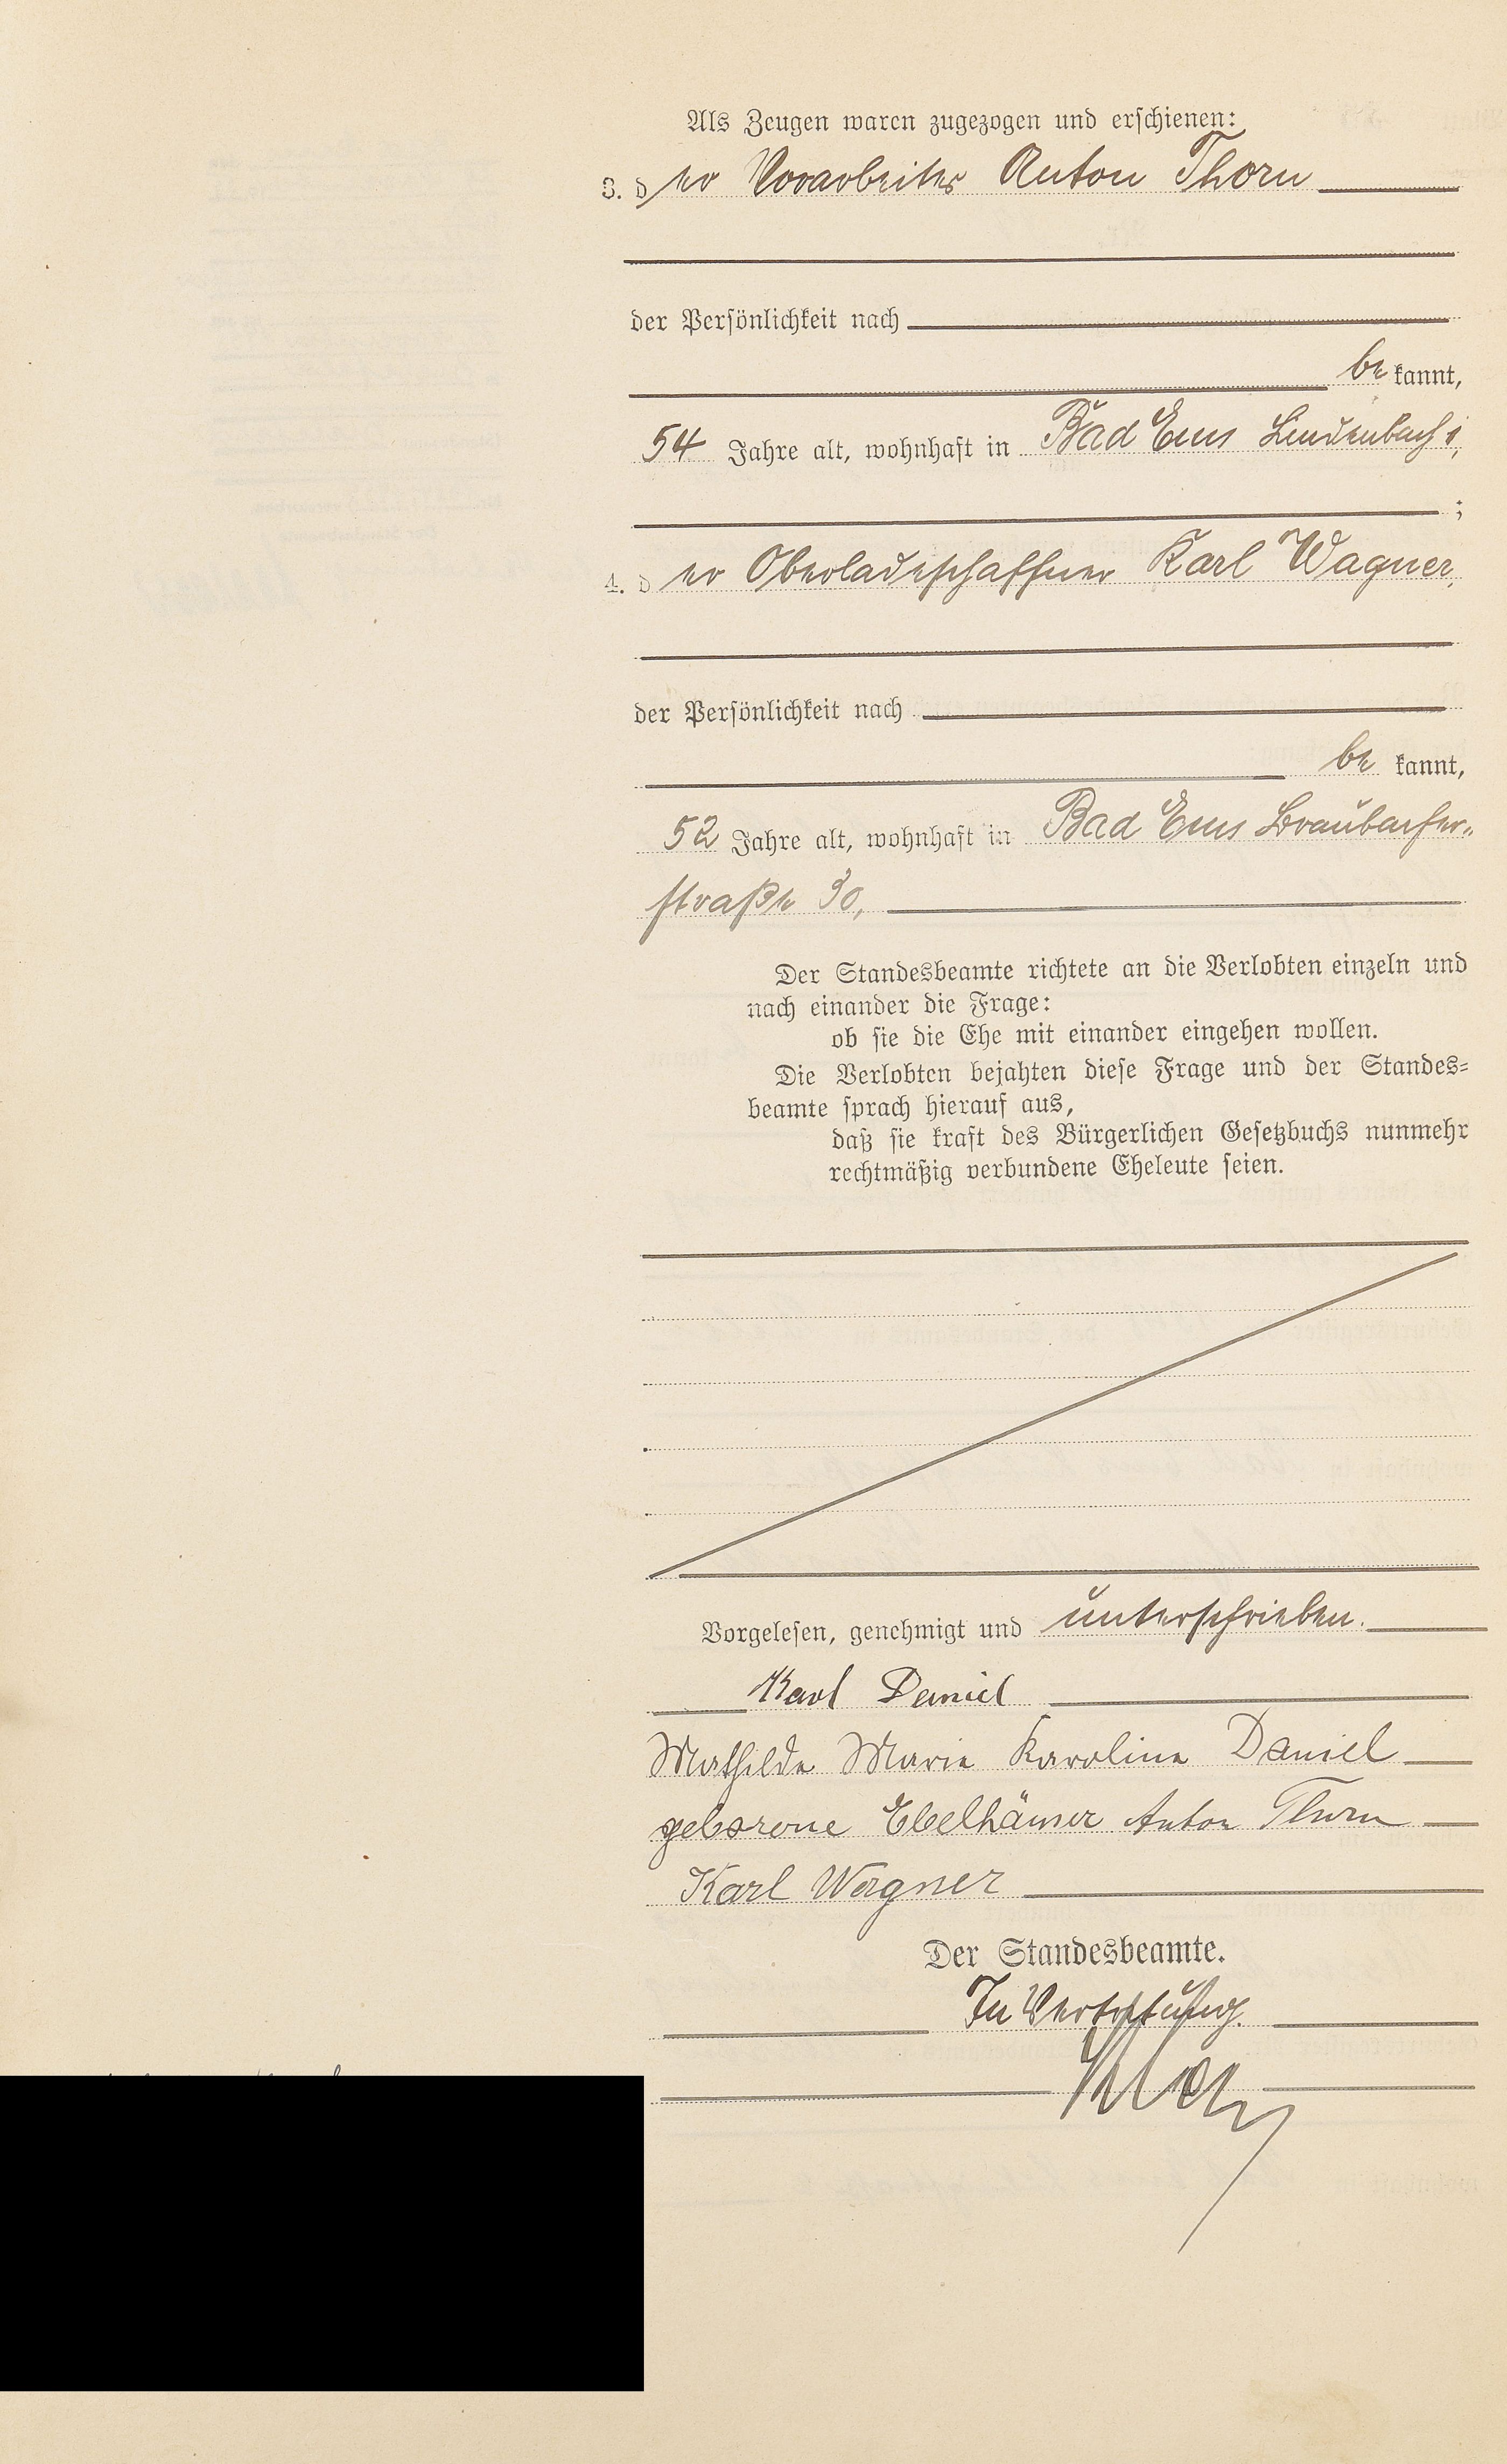 Als Zeugen waren zugezogen und erschienen:
3. der Vorarbeiter Anton Thorn
der Persönlichkeit nach
be kannt,
54 Jahre alt, wohnhaft in Bad Ems Lindenbach
;
4. der Oberladeschaffner Karl Wagner,
der Persönlichkeit nach
be kannt,
52 Jahre alt, wohnhaft in Bad Ems Braubacher-
straße 30,
Der Standesbeamte richtete an die Verlobten einzeln und
nach einander die Frage:
ob sie die Ehe mit einander eingehen wollen.
Die Verlobten bejahten diese Frage und der Standes-
beamte sprach hierauf aus,
daß sie kraft des Bürgerlichen Gesetzbuchs nunmehr
rechtmäßig verbundene Eheleute seien.
Vorgelesen, genehmigt und unterschrieben.
Karl Daniel
Mathilde Marie Karoline Daniel
geborene Ebelhäuser Anton Thorn
Karl Wagner
Der Standesbeamte.
In Vertretung.